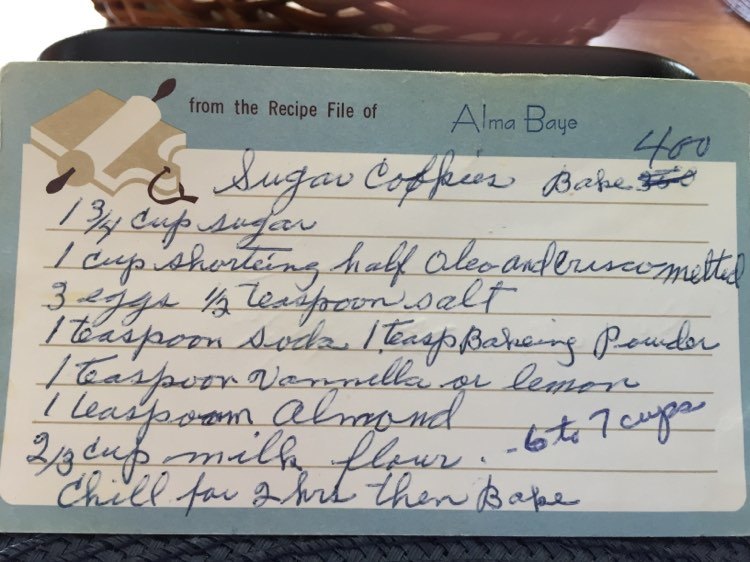 from the Recipe File of Alma Baye
400
Sugar Cookies Bake 350
1 3/4 cup sugar
1 cup shorteing half Oleo and Crisco melted
3 eggs 1/2 teaspoon salt
1 teaspoon soda 1 teasp Bakeing Powder
1 teaspoon vannilla or lemon
1 teaspoon Almond
2/3 cup milk flour. - 6 to 7 cups
Chill for 2 hrs then Bake